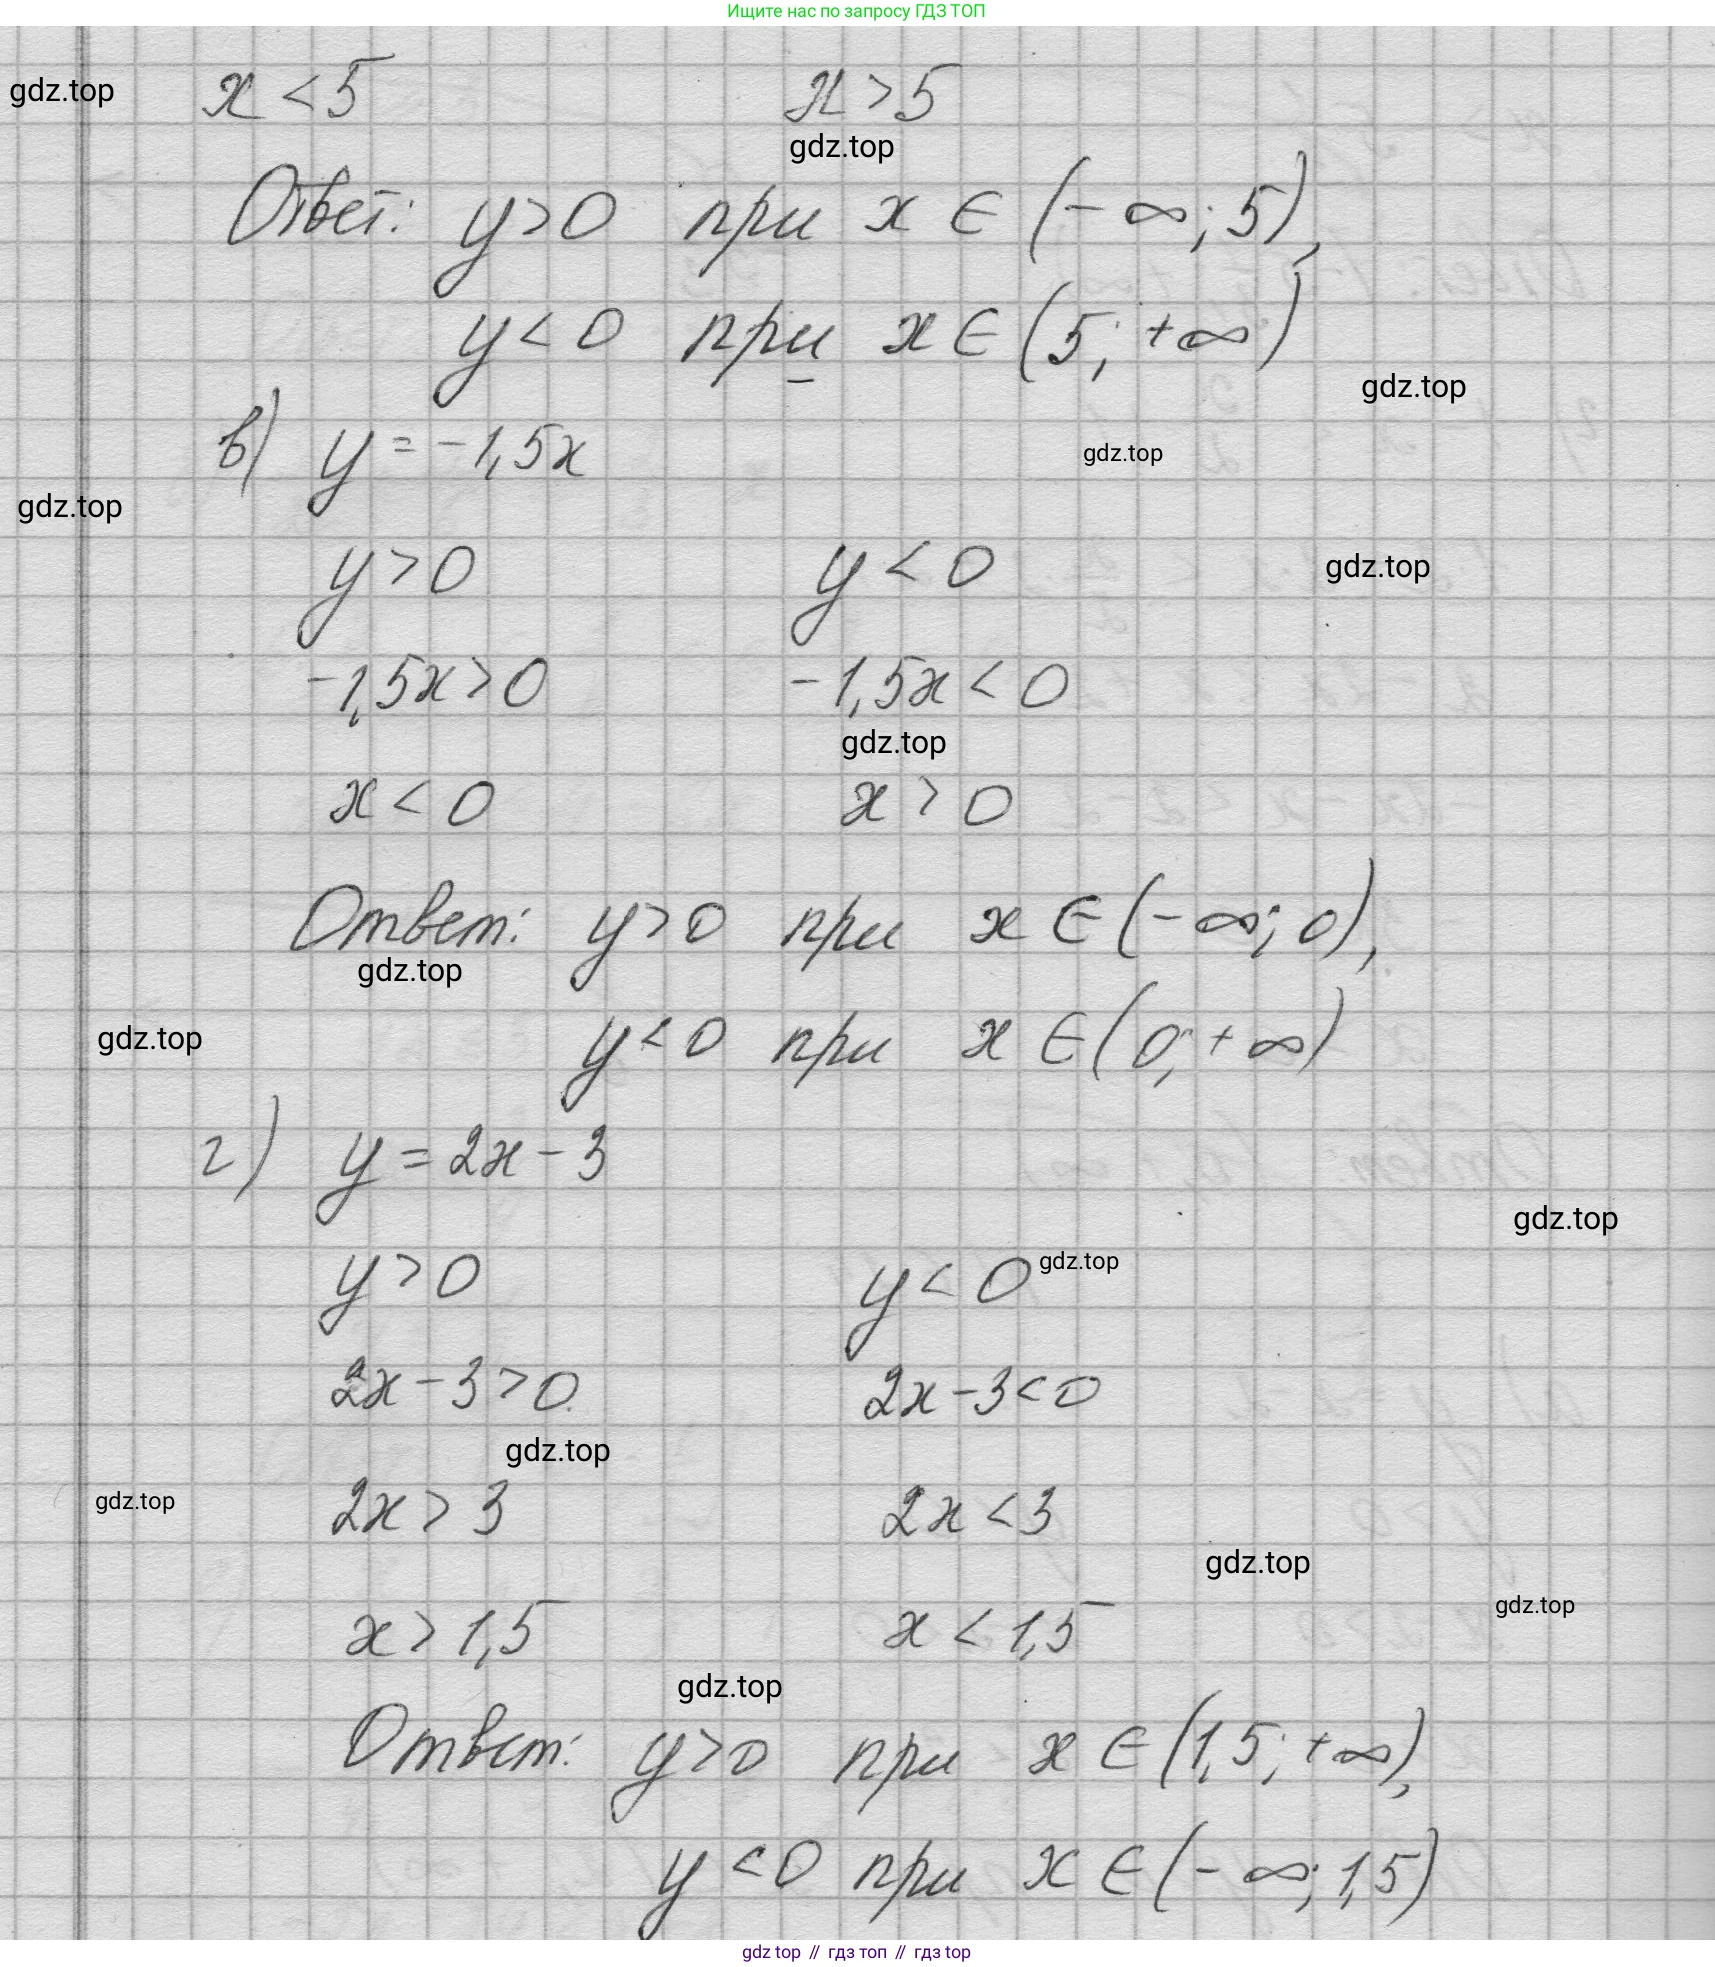 Ищите нас по запросу ГДЗ ТОП
x < 5 x > 5
gdz.top
gdz.top
Ответ: y > 0 при x ∈ (-∞; 5),
y < 0 при x ∈ (5; +∞)
gdz.top
в) y = -1,5x
gdz.top
gdz.top
y > 0 y < 0
gdz.top
-1,5x > 0 -1,5x < 0
gdz.top
x < 0 x > 0
Ответ: y > 0 при x ∈ (-∞; 0),
gdz.top
y < 0 при x ∈ (0; +∞)
gdz.top
г) y = 2x - 3
gdz.top
y > 0 y < 0
gdz.top
2x - 3 > 0 2x - 3 < 0
gdz.top
2x > 3 2x < 3
gdz.top
gdz.top
gdz.top
x > 1,5 x < 1,5
gdz.top
Ответ: y > 0 при x ∈ (1,5; +∞),
y < 0 при x ∈ (-∞; 1,5)
gdz top // гдз топ // gdz top